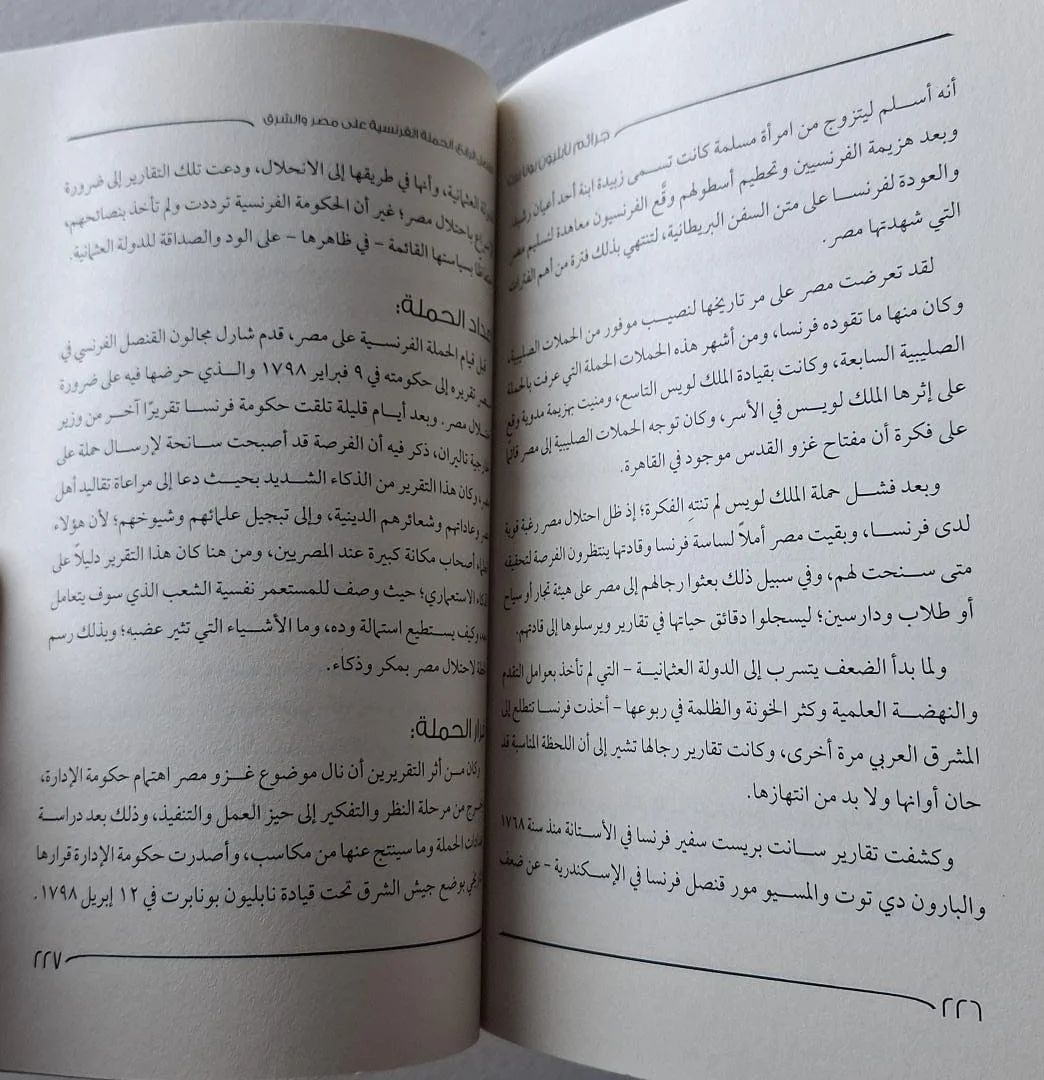 جرائم نابليون بونابرت
أنه أسلم ليتزوج من امرأة مسلمة كانت تسمى زبيدة ابنة أحد أعيان رشيد.
وبعد هزيمة الفرنسيين وتحطيم أسطولهم وقَّع الفرنسيون معاهدة لتسليم مصر
والعودة لفرنسا على متن السفن البريطانية، لتنتهي بذلك فترة من أهم الفترات
التي شهدتها مصر.
لقد تعرضت مصر على مر تاريخها لنصيب موفور من الحملات الصليبية،
وكان منها ما تقوده فرنسا، ومن أشهر هذه الحملات الحملة التي عرفت بالحملة
الصليبية السابعة، وكانت بقيادة الملك لويس التاسع، ومنيت بهزيمة مدوية وقع
على إثرها الملك لويس في الأسر، وكان توجه الحملات الصليبية إلى مصر قائمًا
على فكرة أن مفتاح غزو القدس موجود في القاهرة.
وبعد فشل حملة الملك لويس لم تنتهِ الفكرة؛ إذ ظل احتلال مصر رغبة قوية
لدى فرنسا، وبقيت مصر أملاً لساسة فرنسا وقادتها ينتظرون الفرصة لتحقيقه
متى سنحت لهم، وفي سبيل ذلك بعثوا رجالهم إلى مصر على هيئة تجار أو سياح
أو طلاب ودارسين؛ ليسجلوا دقائق حياتها في تقارير ويرسلوها إلى قادتهم.
ولما بدأ الضعف يتسرب إلى الدولة العثمانية – التي لم تأخذ بعوامل التقدم
والنهضة العلمية وكثر الخونة والظلمة في ربوعها – أخذت فرنسا تتطلع إلى
المشرق العربي مرة أخرى، وكانت تقارير رجالها تشير إلى أن اللحظة المناسبة قد
حان أوانها ولا بد من انتهازها.
وكشفت تقارير سانت بريست سفير فرنسا في الأستانة منذ سنة ١٧٦٨
والبارون دي توت والمسيو مور قنصل فرنسا في الإسكندرية – عن ضعف
٢٢٦
الفصل الرابع: الحملة الفرنسية على مصر والشرق
العثمانية، وأنها في طريقها إلى الانحلال، ودعت تلك التقارير إلى ضرورة
باحتلال مصر؛ غير أن الحكومة الفرنسية ترددت ولم تأخذ بنصائحهم،
بسياستها القائمة – في ظاهرها – على الود والصداقة للدولة العثمانية.
الحملة:
قبل قيام الحملة الفرنسية على مصر، قدم شارل مجالون القنصل الفرنسي في
تقريره إلى حكومته في ٩ فبراير ١٧٩٨ والذي حرضها فيه على ضرورة
مصر. وبعد أيام قليلة تلقت حكومة فرنسا تقريرًا آخر من وزير
تاليران، ذكر فيه أن الفرصة قد أصبحت سانحة لإرسال حملة على
وكان هذا التقرير من الذكاء الشديد بحيث دعا إلى مراعاة تقاليد أهل
وعاداتهم وشعائرهم الدينية، وإلى تبجيل علمائهم وشيوخهم؛ لأن هؤلاء
أصحاب مكانة كبيرة عند المصريين، ومن هنا كان هذا التقرير دليلاً على
الاستعماري؛ حيث وصف للمستعمر نفسية الشعب الذي سوف يتعامل
وكيف يستطيع استمالة وده، وما الأشياء التي تثير غضبه؛ وبذلك رسم
لاحتلال مصر بمكر وذكاء.
الحملة:
وكان من أثر التقريرين أن نال موضوع غزو مصر اهتمام حكومة الإدارة،
من مرحلة النظر والتفكير إلى حيز العمل والتنفيذ، وذلك بعد دراسة
الحملة وما سينتج عنها من مكاسب، وأصدرت حكومة الإدارة قرارها
بوضع جيش الشرق تحت قيادة نابليون بونابرت في ١٢ إبريل ١٧٩٨.
٢٢٧